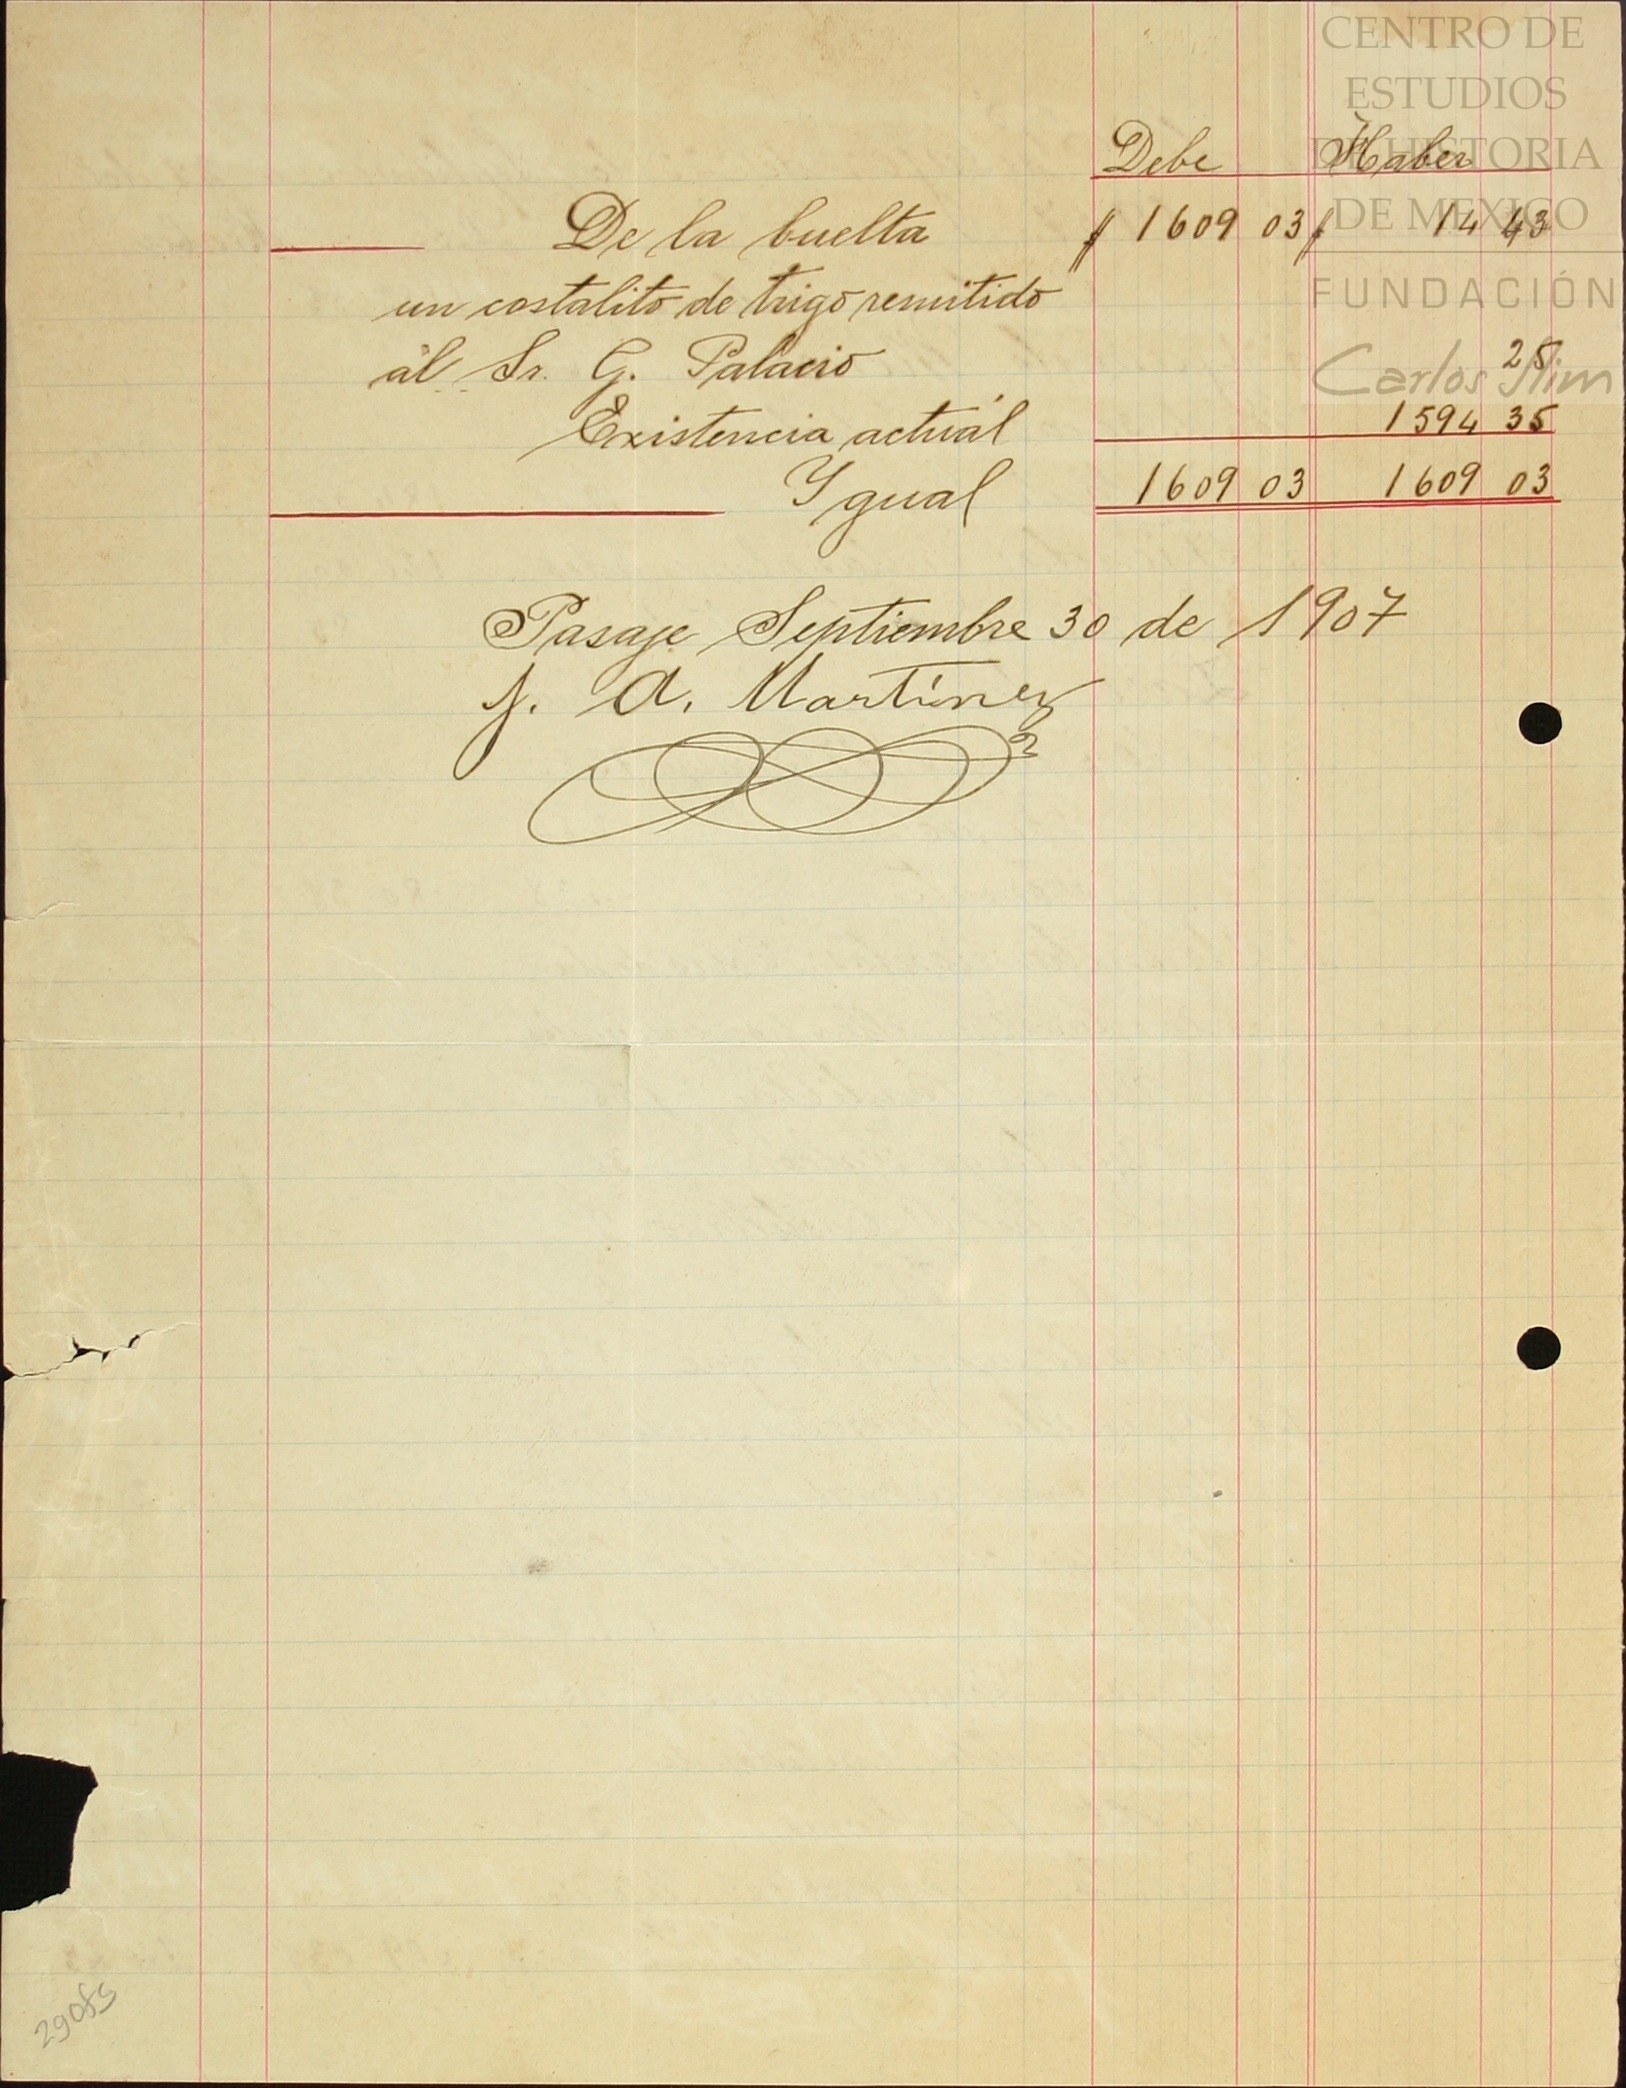 CENTRO DE
ESTUDIOS
DE HISTORIA
DE MEXICO
FUNDACIÓN
Carlos Slim
Debe Haber
De la buelta $ 1609 03 $ 14 43
un costalito de trigo remitido
ál Sr. G. Palacio 25
Existencia actuál 1594 35
Ygual 1609 03 1609 03
Pasaje Septiembre 30 de 1907
J. A. Martínez